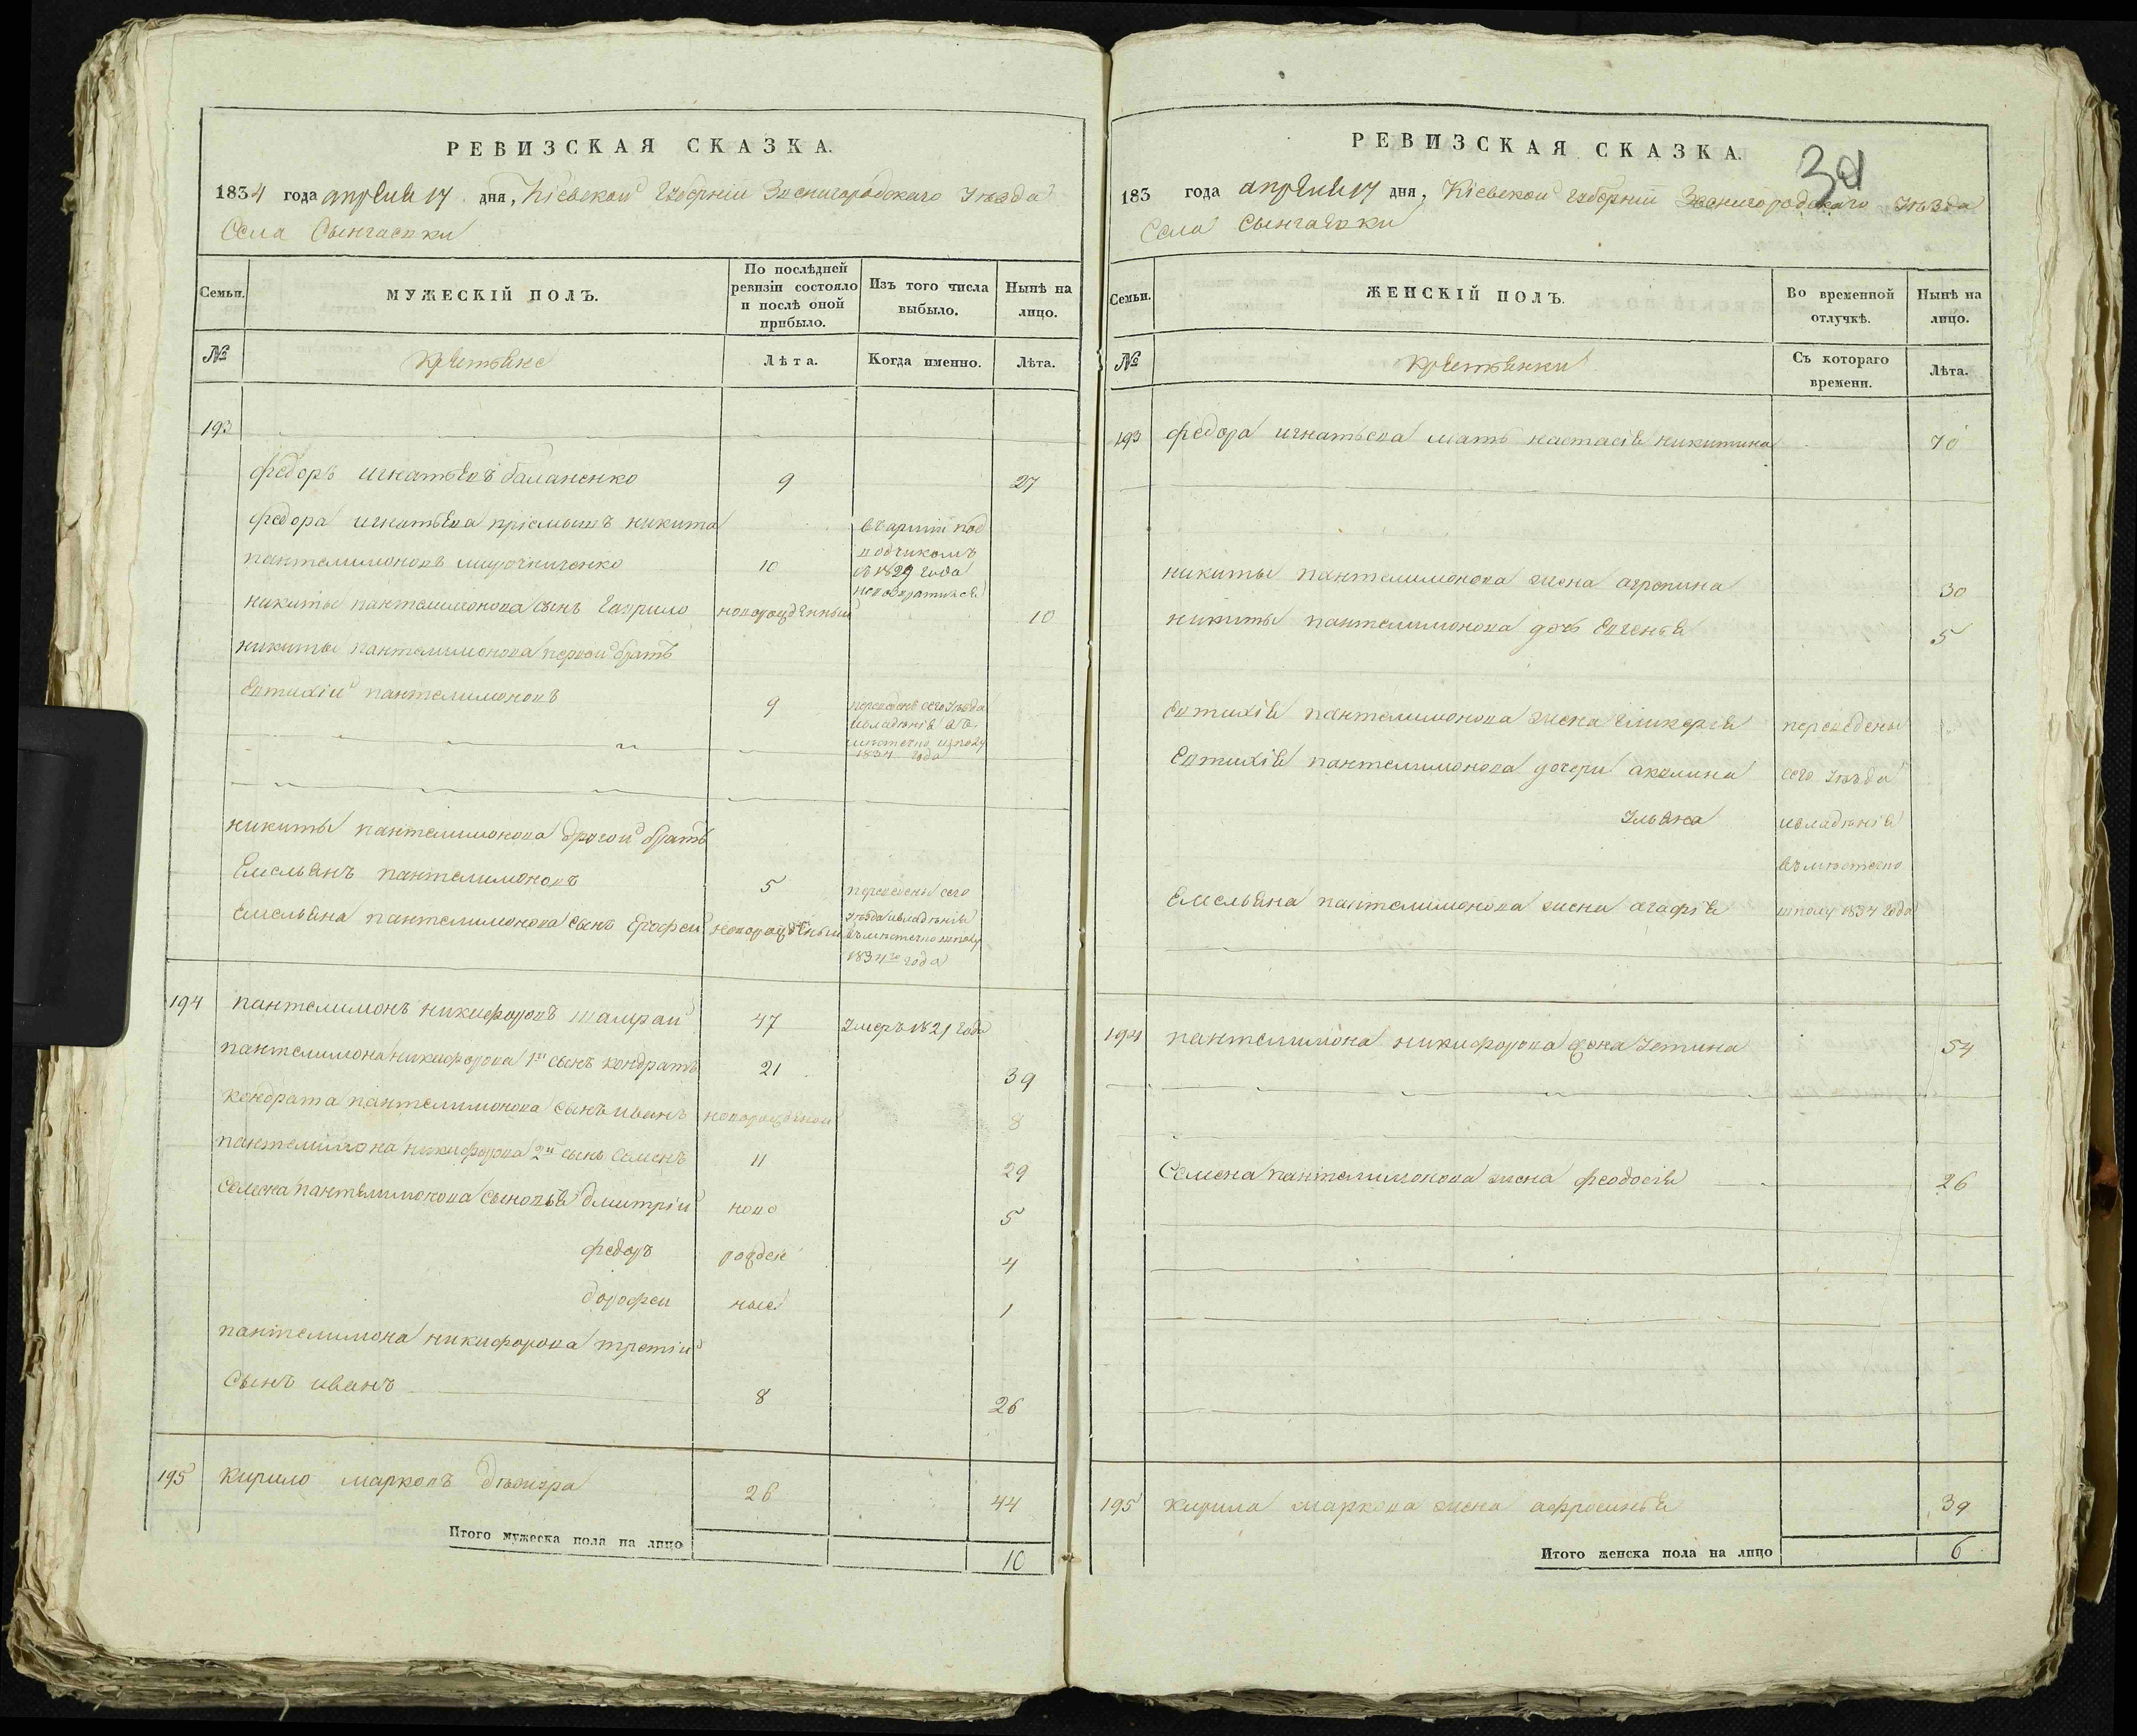 РЕВИЗСКАЯ СКАЗКА.
1834 года апреля 17 дня, Кіевской Губерніи Звенигородскаго Уѣзда
Села Сынгаевки
Семьи.
МУЖЕСКІЙ ПОЛЪ.
По послѣдней ревизіи состояло и послѣ оной прибыло.
Изъ того числа выбыло.
Нынѣ на лицо.
№
Крестьяне
Лѣта.
Когда именно.
Лѣта.
193
Федоръ игнатьевъ баланенко 9 27
Федора игнатьева пріемышъ никита
въ арміи под
пантелимоновъ 10
водчикомъ
съ 1829 года
невозвратился
никиты пантелимонова сынъ гаврило новорожденный 10
никиты пантелимонова первой братъ
Евтихіи пантелимоновъ 9
переведенъ сего Уѣзда
ивладѣнія въ
мѣстечко шполу
1834 года
никиты пантелимонова другой братъ
Емельянъ пантелимоновъ 5
переведены сего
Емельяна пантелимонова сынъ Ерофей новорожденный
Уѣзда ивладѣнія
въ мѣстечко шполу
1834го года
194 пантелимонъ никифоровъ шамрай 47 Умеръ 1821 года
пантелимона никифорова 1й сынъ кондратъ 21 39
кондрата пантелимонова сынъ иванъ новорожденой 8
пантелимона никифорова 2й сынъ Семенъ 11 29
Семена пантелимонова сыновья дмитрій ново 5
федоръ рожден 4
дорофеи ные 1
пантелимона никифорова третій
сынъ иванъ 8 26
195 кирило марковъ 26 44
Итого мужеска пола на лицо 10
РЕВИЗСКАЯ СКАЗКА.
30
183 года апреля 17 дня, Кіевской губерніи Звенигородскаго Уѣзда
Села Сынгаевки
Семьи.
ЖЕНСКІЙ ПОЛЪ.
Во временной отлучкѣ.
Нынѣ на лицо.
№
Крестьянки
Съ котораго времени.
Лѣта.
193 федора игнатьева мать настасія никитина 70
никиты пантелимонова жена агрепина 30
никиты пантелимонова дочь Евгенья 5
Евтихія пантелимонова жена гликерія переведены
Евтихія пантелимонова дочери акилина сего Уѣзда
Ульяна ивладѣнія
въ мѣстечко
Емельяна пантелимонова жена агафія шполу 1834 года
194 пантелимона никифорова жена Устина 54
Семена пантелимонова жена феодосія 26
195 кирила маркова жена афросинья 39
Итого женска пола на лицо 6